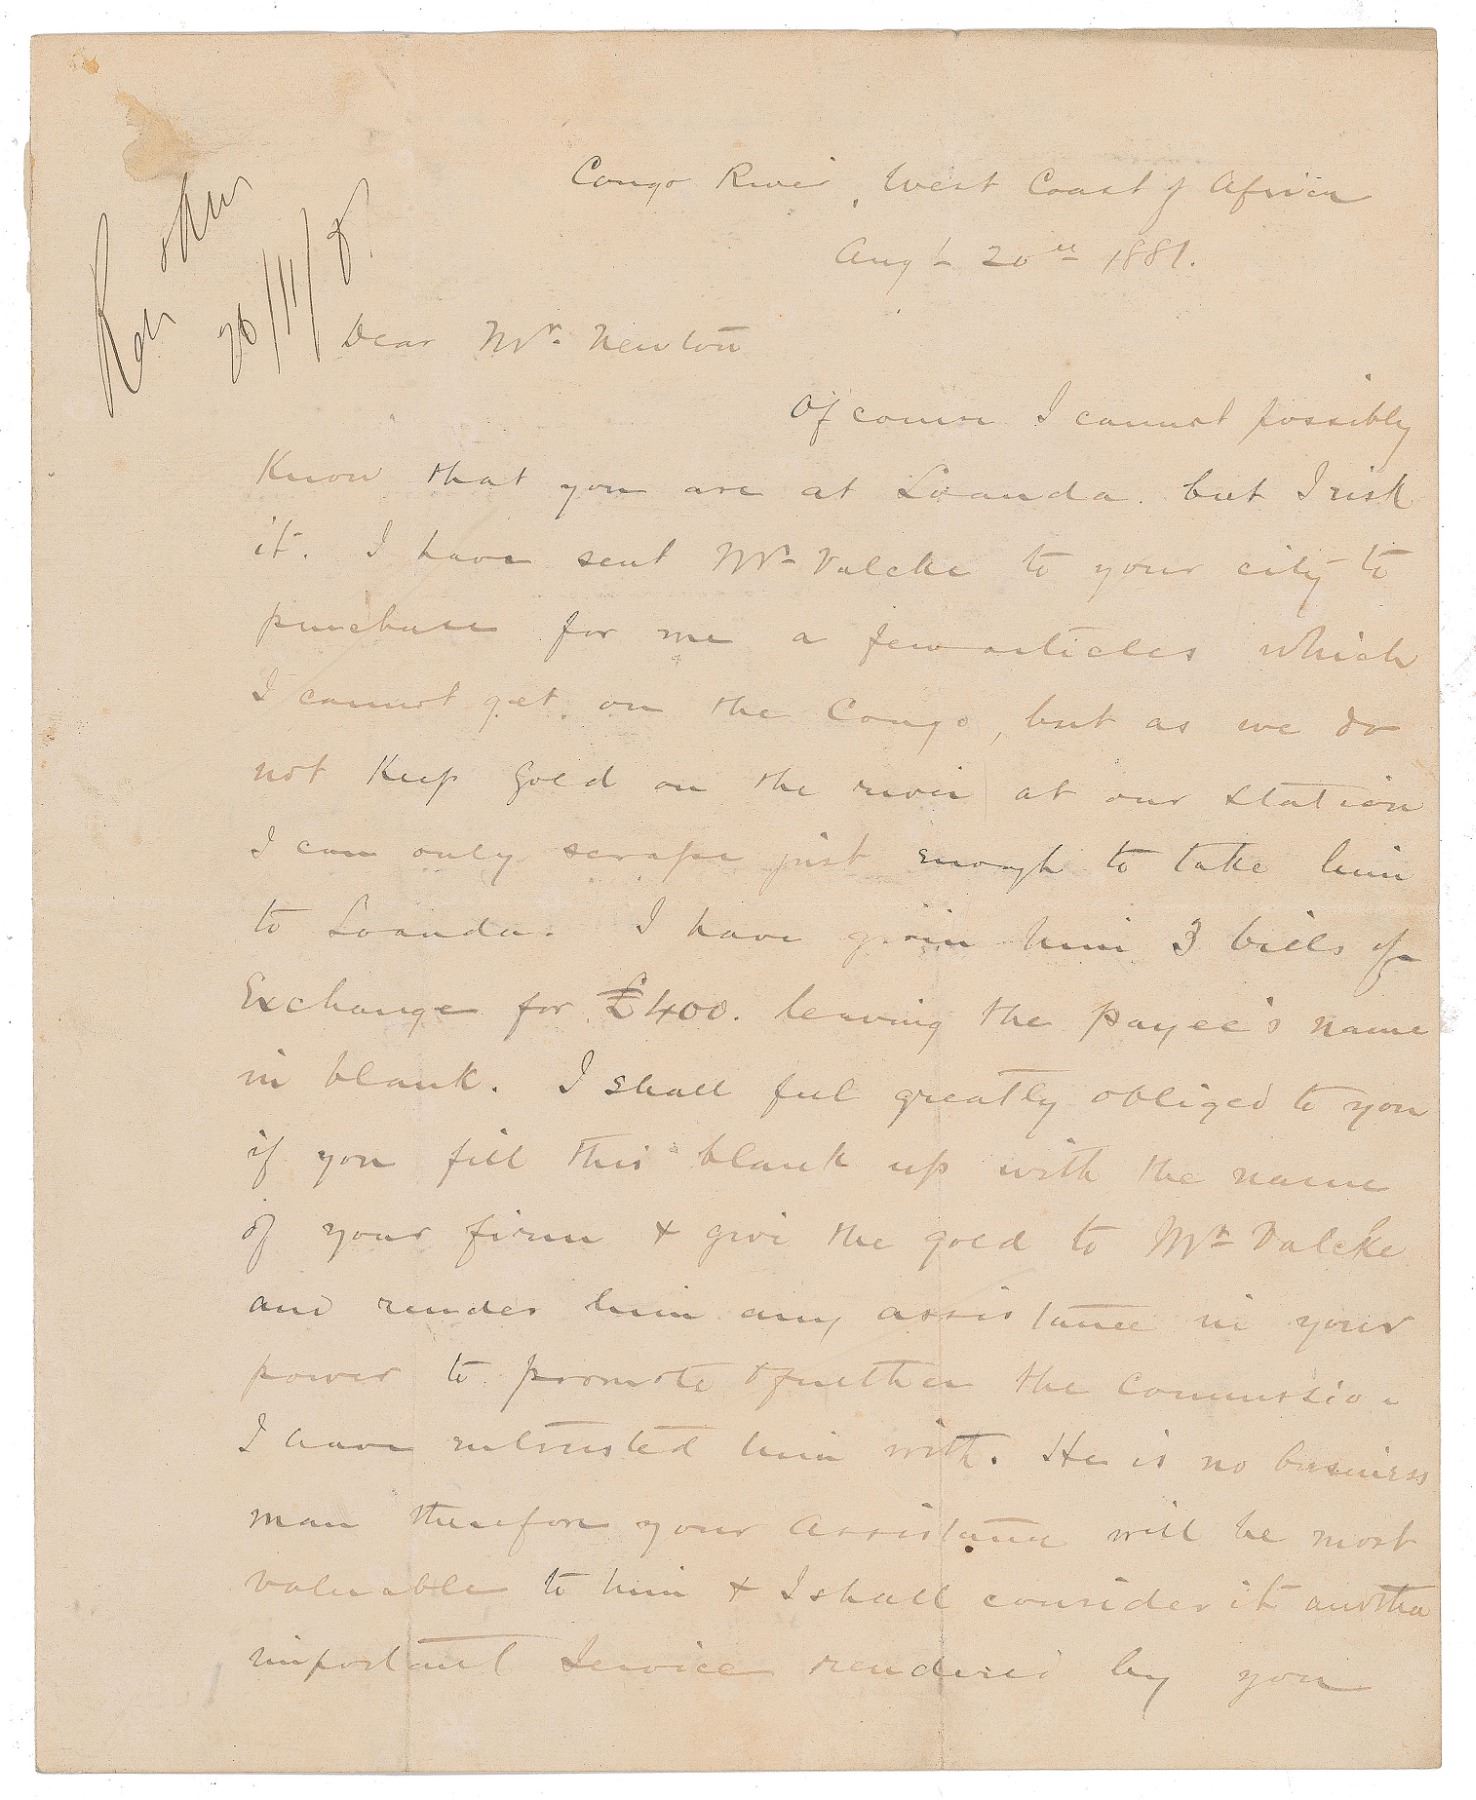 Congo River, West Coast of Africa
Augt 20th 1881.
26/11/8
Dear Mr. Newton
Of course I cannot possibly
Know that you are at Loanda. but I risk
it. I have sent Mr Valcke to your city to
purchase for me a few articles which
I cannot get on the Congo, but as we do
not Keep gold on the river at our Station
I can only scrape just enough to take him
to Loanda. I have given him 3 bills of
Exchange for £400. leaving the payee's name
in blank. I shall feel greatly obliged to you
if you fill this blank up with the name
of your firm & give the gold to Mr Valcke
and render him any assistance in your
power to promote & further the Commission
I have entrusted him with. He is no business
man therefore your Assistance will be most
valuable to him & I shall consider it another
important Service rendered by you